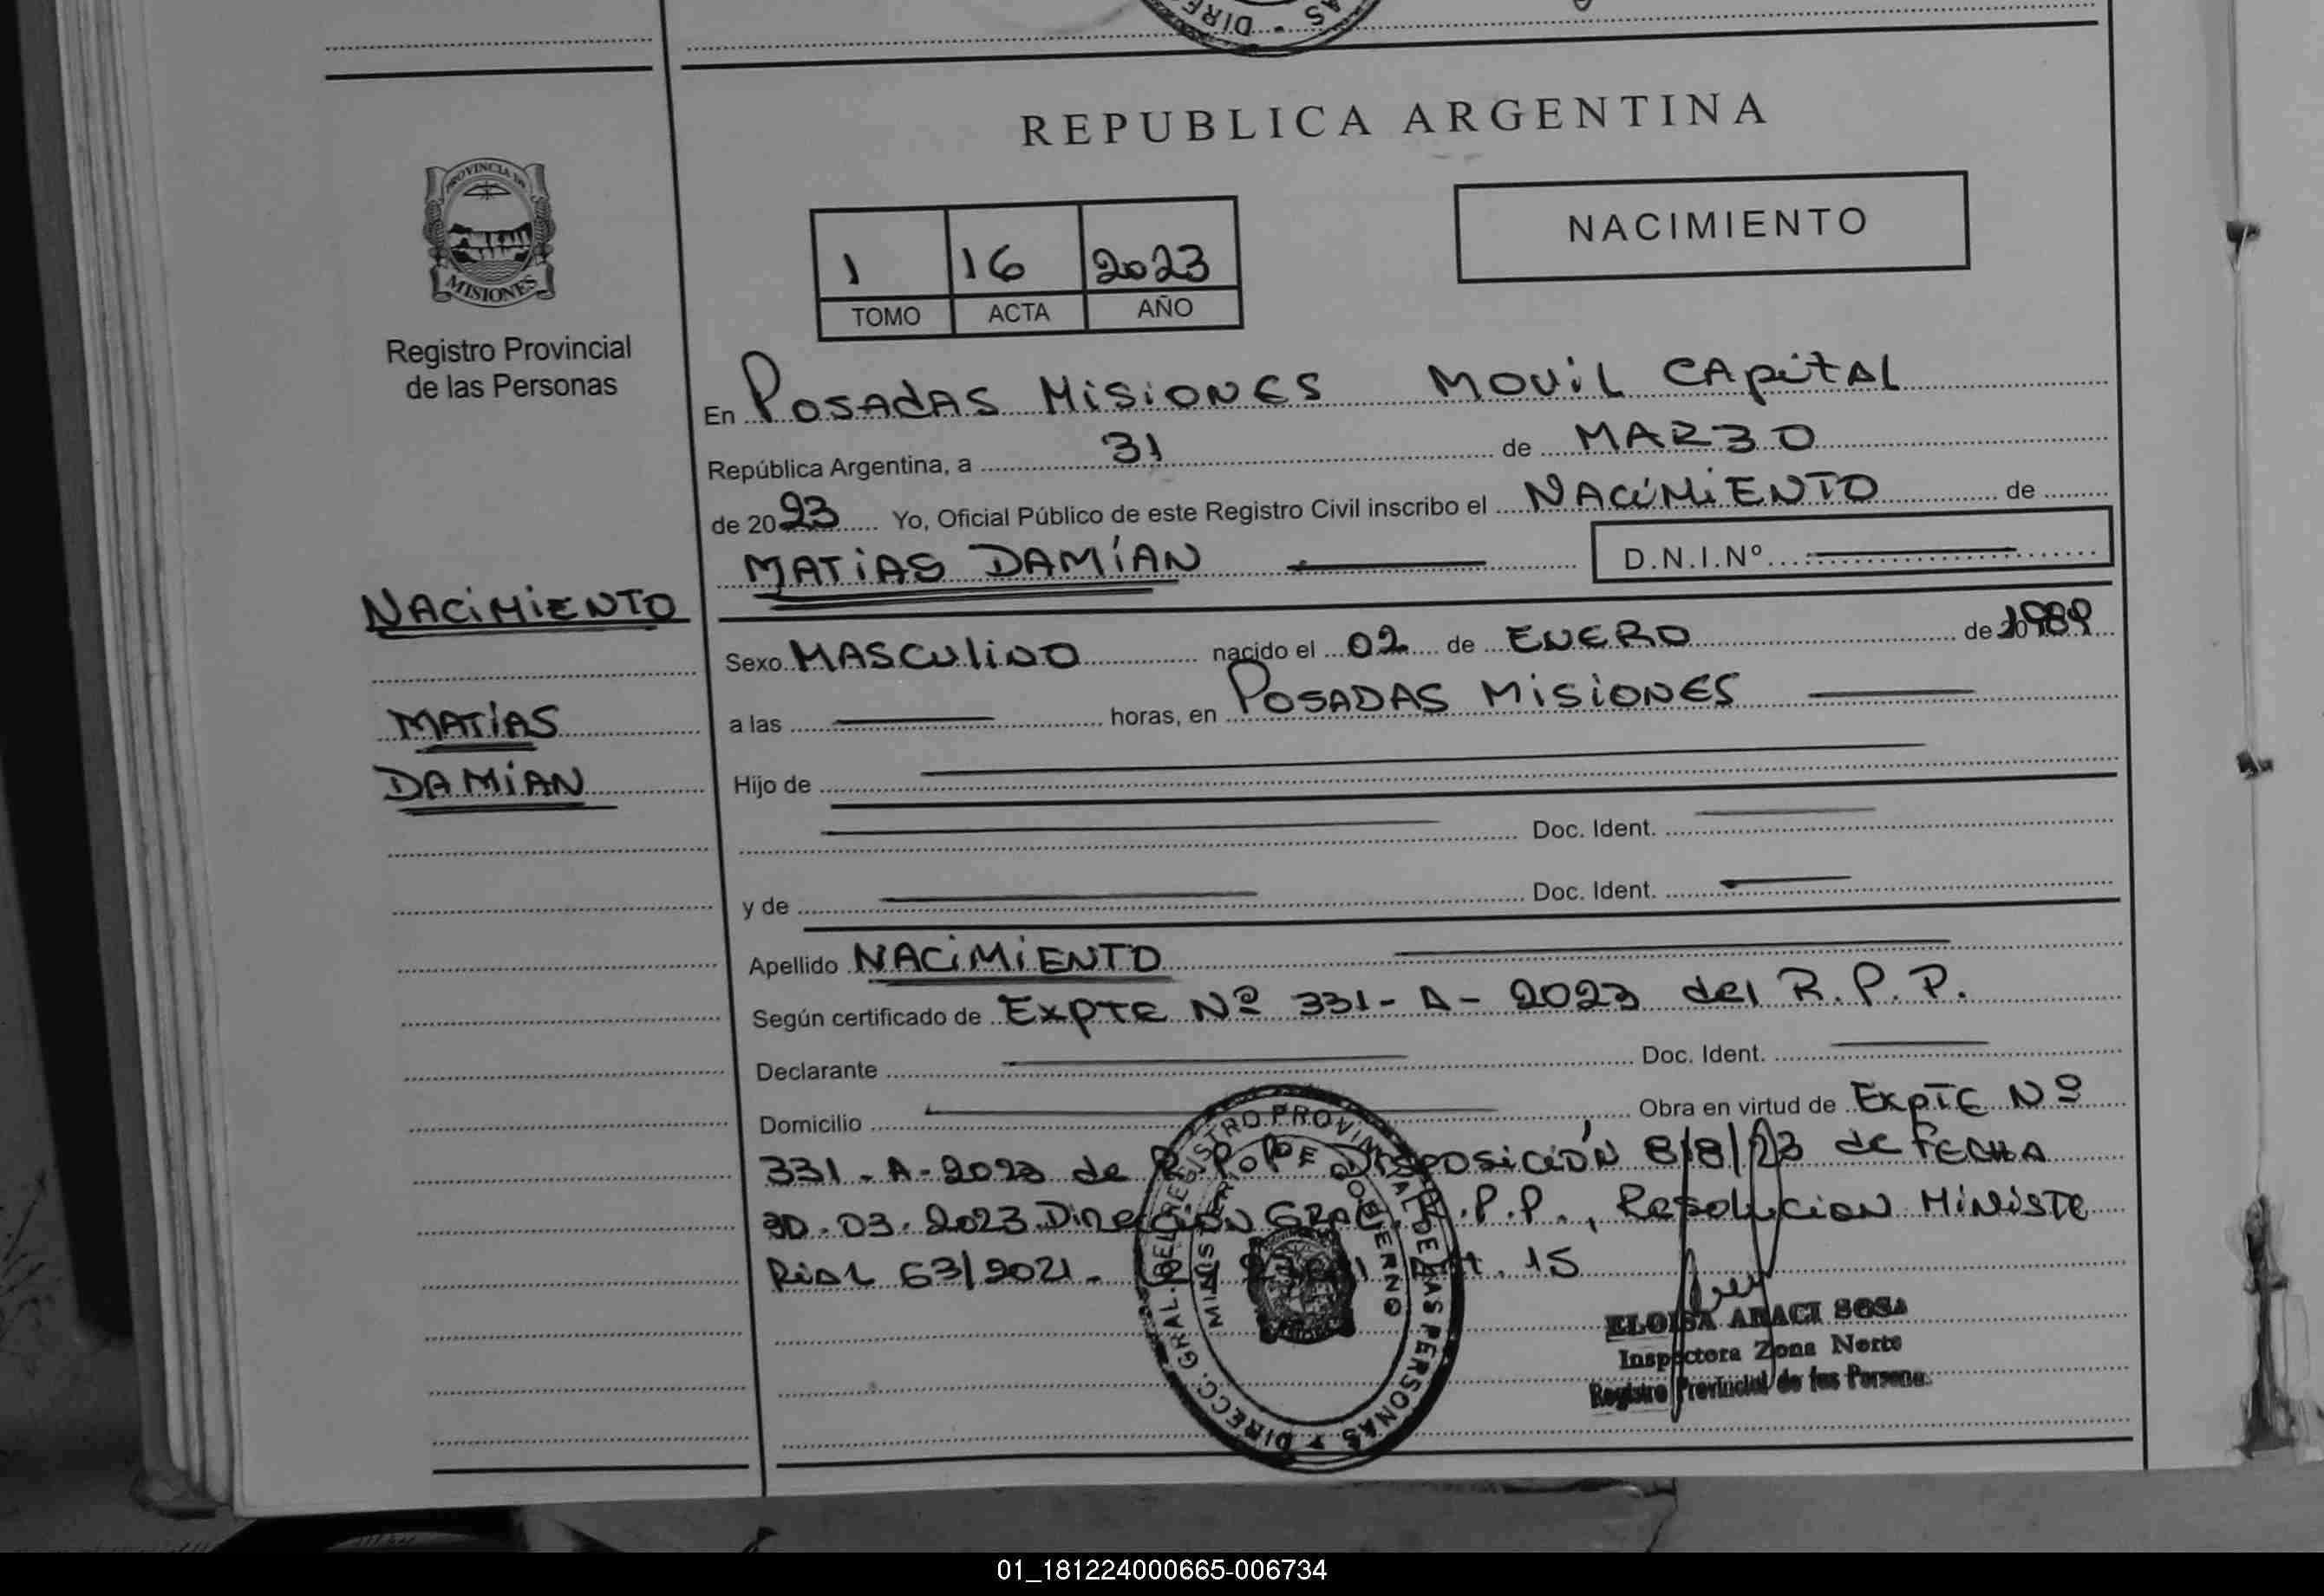 DIRE - AS
REPUBLICA ARGENTINA
PROVINCIA DE
MISIONES
Registro Provincial
de las Personas
NACIMIENTO
1 16 2023
TOMO ACTA AÑO
En Posadas Misiones Movil Capital
República Argentina, a 31 de MARZO
de 2023 Yo, Oficial Público de este Registro Civil inscribo el NACIMIENTO de
MATIAS DAMÍAN D.N.I.Nº
NACIMIENTO
MATÍAS
DAMIAN
Sexo MASCULINO nacido el 02 de ENERO de 1989
a las horas, en POSADAS MISIONES
Hijo de
Doc. Ident.
y de Doc. Ident.
Apellido NACIMIENTO
Según certificado de EXPTE Nº 331-A-2023 del R.P.P.
Declarante Doc. Ident.
Domicilio Obra en virtud de EXPTE Nº
331-A-2023 de R.P.P. Disposición 8/8/23 de FECHA
30.03.2023 Dirección GRAL. R.P.P., Resolucion Ministe
Rial 63/2021. - Art. 15
DIRECC. GRAL. DEL REGISTRO PROVINCIAL DE LAS PERSONAS
MINISTERIO DE GOBIERNO
ELOISA ARACI SOSA
Inspectora Zona Norte
Registro Provincial de las Persona
01_181224000665-006734